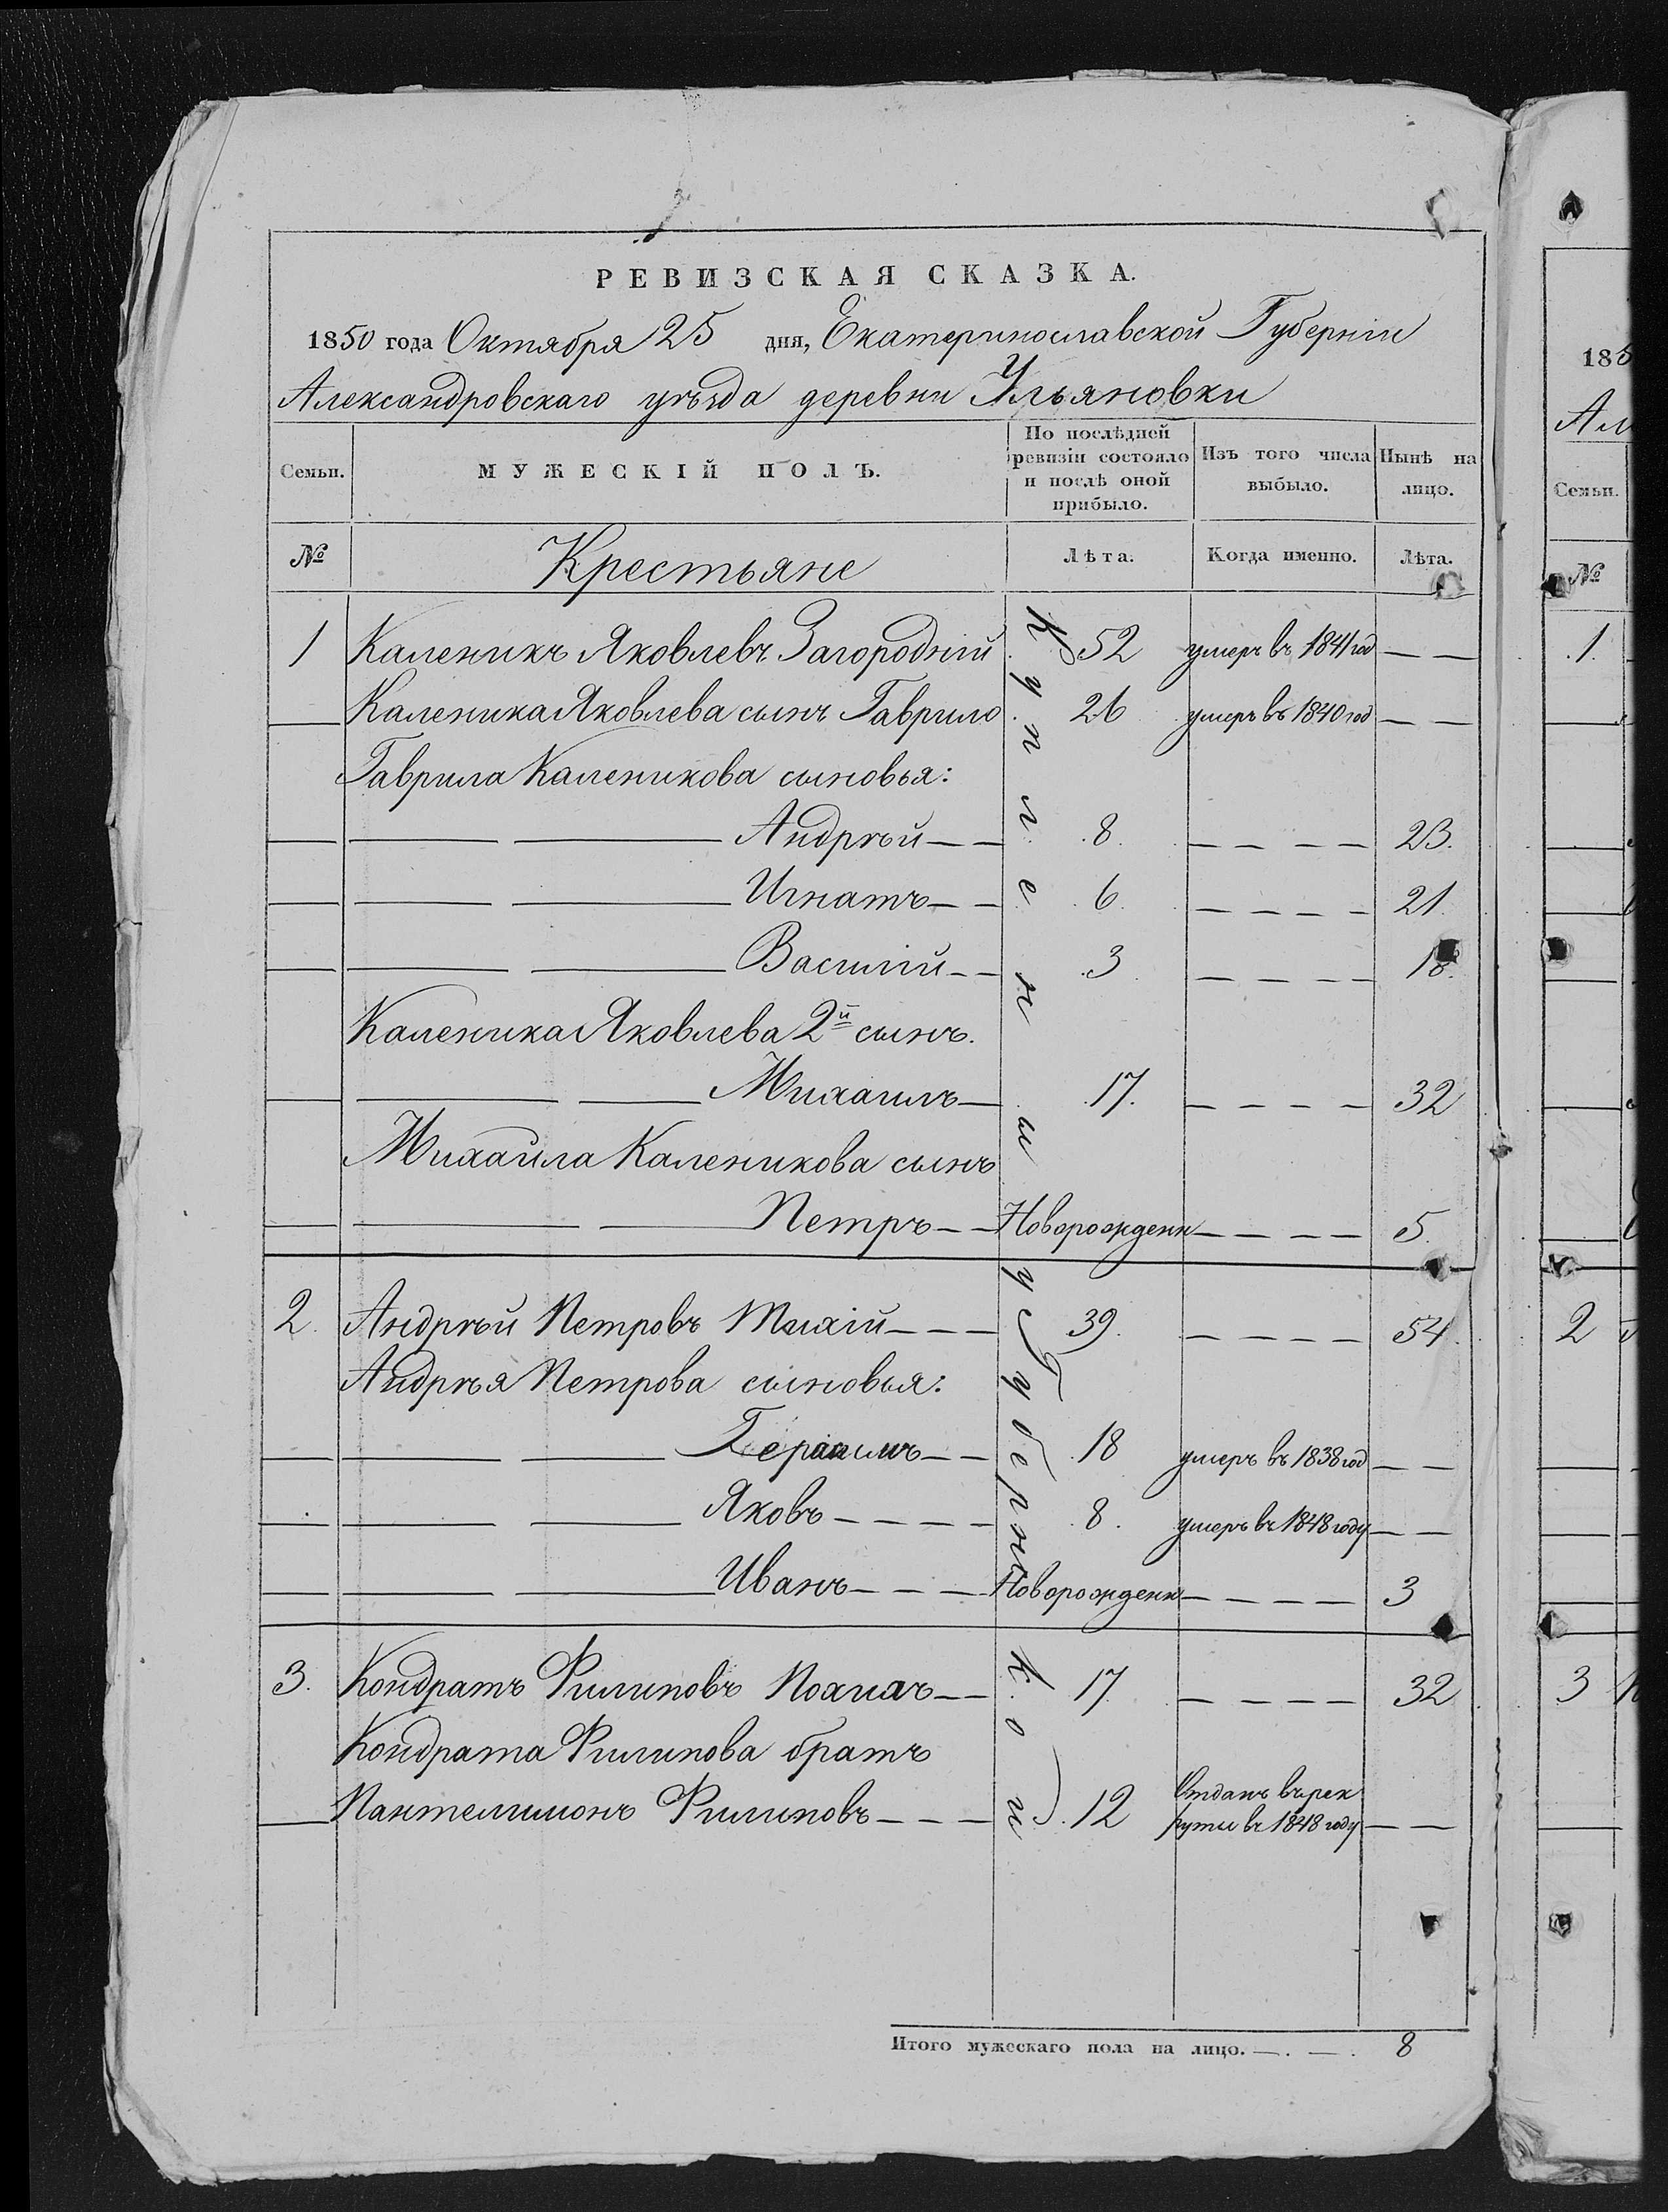 РЕВИЗСКАЯ СКАЗКА.
1850 года Октября 25 дня, Екатеринославской Губерніи
Александровскаго уѣзда деревни Ульяновки
Семьи. МУЖЕСКІЙ ПОЛЪ. По послѣдней ревизіи состояло и послѣ оной прибыло. Изъ того числа выбыло. Нынѣ на лицо.
№ Крестьяне Лѣта. Когда именно. Лѣта.
1 Каленикъ Яковлевъ Загородній 52 умеръ въ 1841 год — —
Каленика Яковлева сынъ Гаврило 26 умеръ въ 1840 год — —
Гаврила Каленикова сыновья:
Андрѣй — — 8. — — — — 23.
Игнатъ — — 6. — — — — 21.
Василій — — 3 — — — — 18.
Каленика Яковлева 2й сынъ.
Михаилъ — 17. — — — — 32
Михаила Каленикова сынъ
Петръ — — Новорожденн — — — — 5.
2. Андрѣй Петровъ Тихій — — — 39. — — — — 54.
Андрѣя Петрова сыновья:
Герасимъ — — 18 умеръ въ 1838 год — —
Яковъ — — — — 8. умеръ въ 1848 году — —
Иванъ — — — Новорожденн — — — — 3
3. Кондратъ Филиповъ — — 17 — — — — 32
Кондрата Филипова братъ
Пантелимонъ Филиповъ — — — 12 Отданъ въ рек
руты въ 1848 году — —
Куплены у Губерн
Итого мужескаго пола на лицо. — . — . 8
185
Ал
Семьи.
№
.1.
2
3